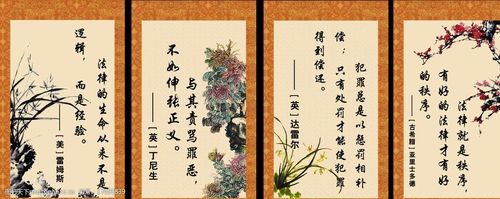 法律的生命从来不是
逻辑，而是经验。
——[美]雷姆斯
与其责骂罪恶
不如伸张正义。
——[英]丁尼生
犯罪总是以惩罚相补
偿；只有处罚才能使犯罪
得到偿还。
——[英]达雷尔
法律就是秩序，
有好的法律才有好
的秩序。
——[古希腊]亚里士多德